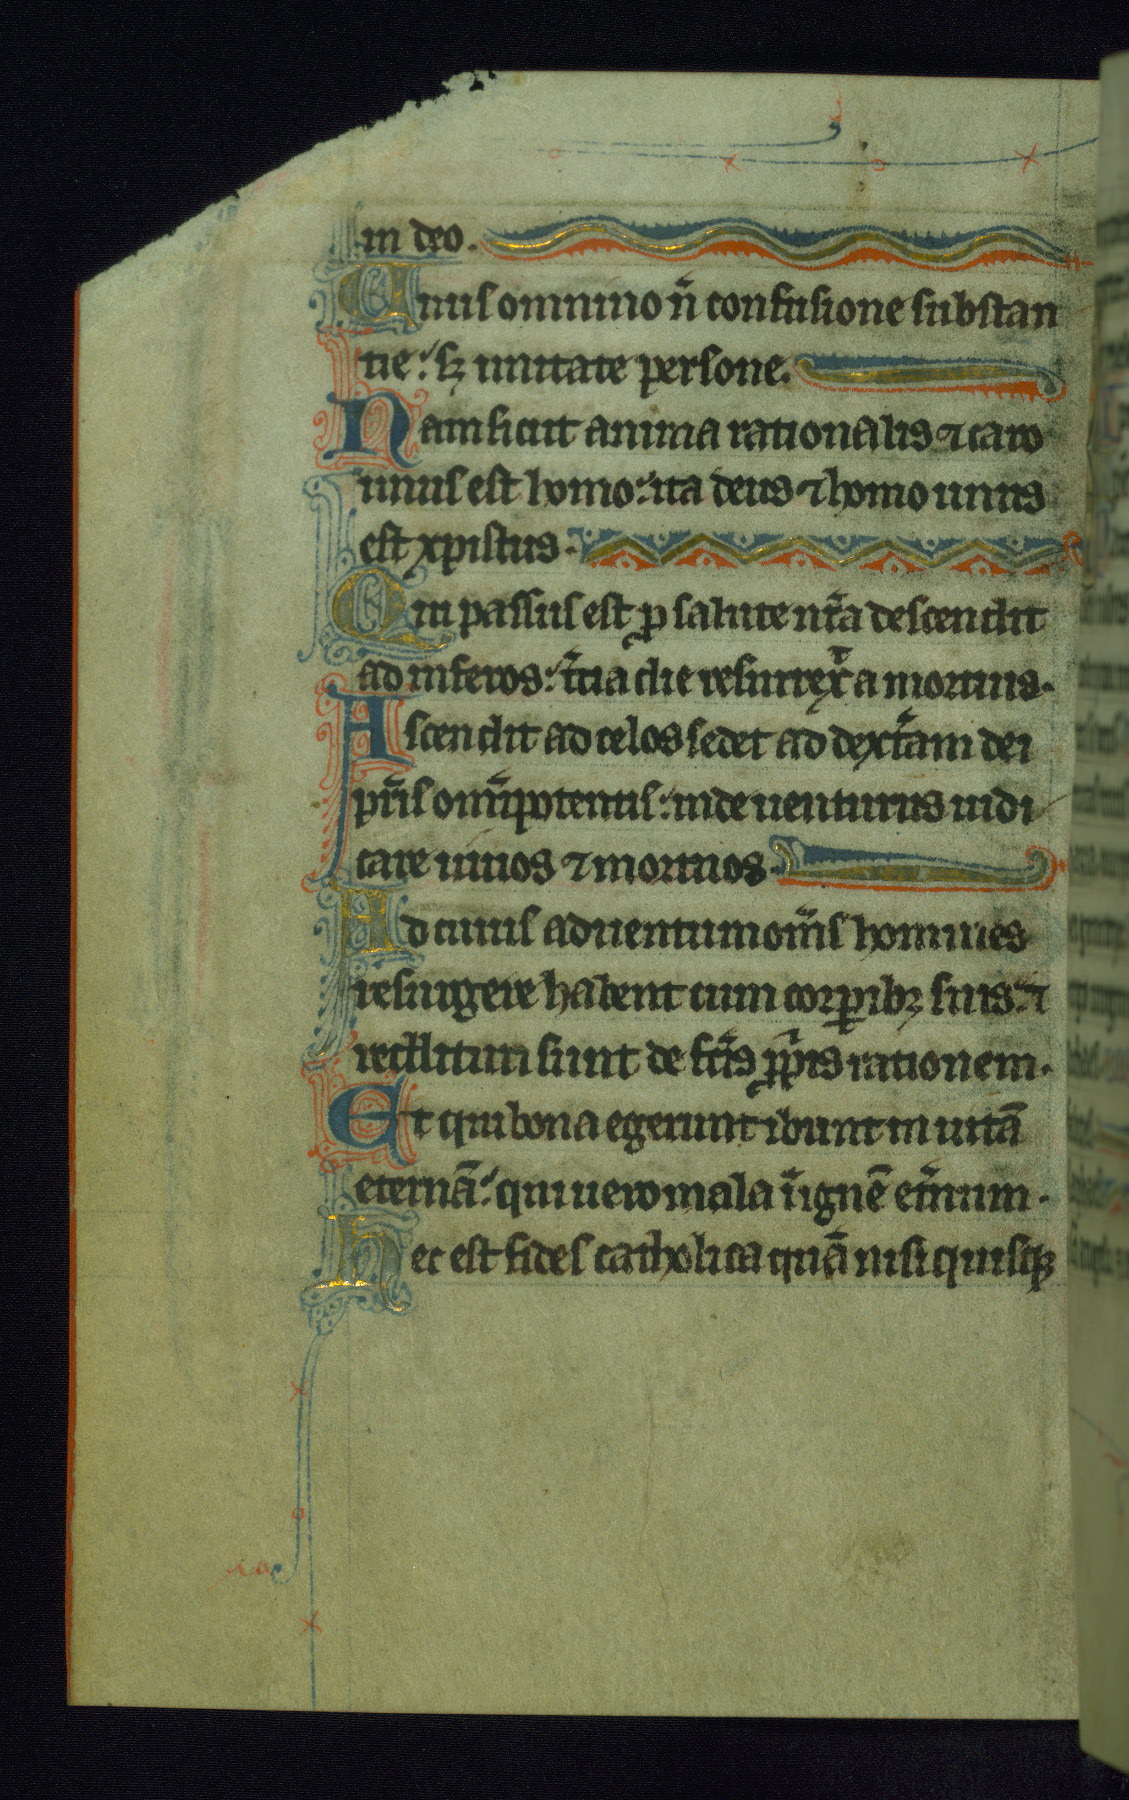 in deo.
Unus omnino n̄ confusione substan
tie: sꝫ unitate persone.
Nam sicut anima rationalis ⁊ caro
unus est homo: ita deus ⁊ homo unus
est xpistus.
Qui passus est ꝓ salute nr̄a descendit
ad inferos: t̄cia die resurrex̄ a mortuis.
Ascendit ad celos sedet ad dext̄am dei
pr̄is om̄ipotentis: inde uenturus iudi
care uiuos ⁊ mortuos.
Ad cuius aduentum om̄is homines
resurgere habent cum corꝑibꝫ suis: ⁊
reddituri sunt de fc̄is ꝓpͥis rationem.
Et qui bona egerunt ibunt in uitā
eternā: qui uero mala ī ignē et̄num.
Hec est fides catholica quā nisi quisqꝫ